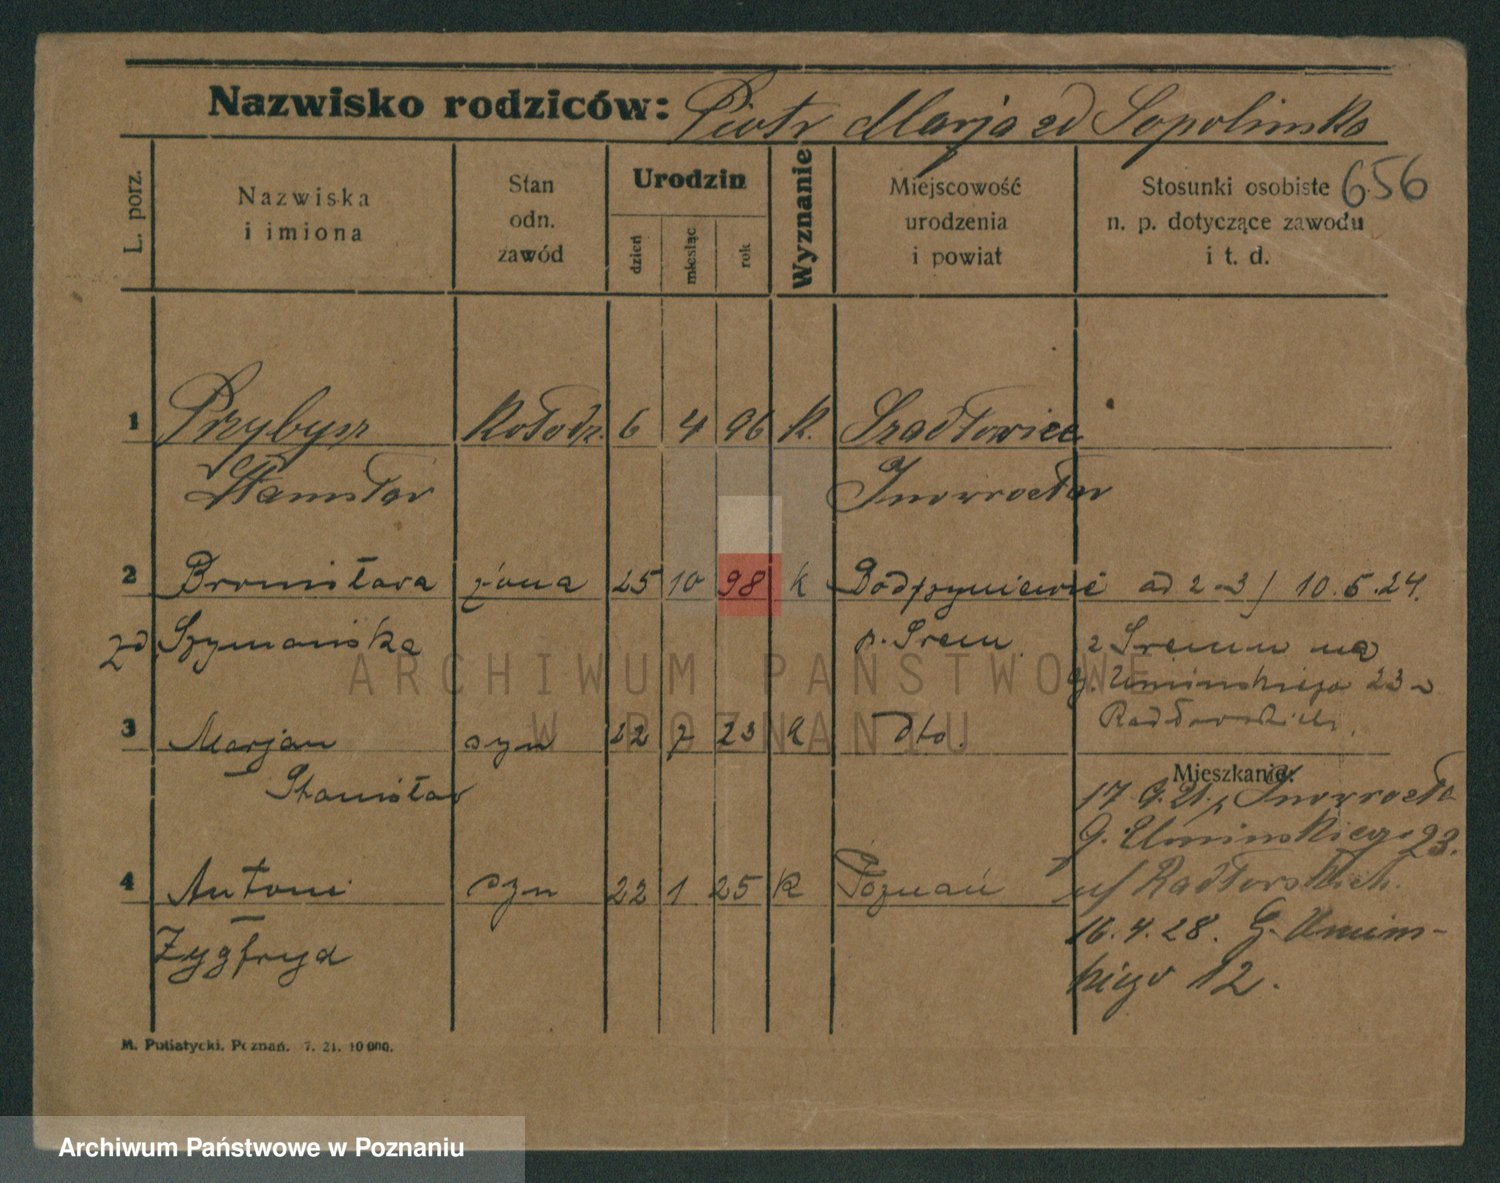 Nazwisko rodziców: Piotr Marja zd Sopolinska
656
L. porz.
Nazwiska
i imiona
Stan
odn.
zawód
Urodzin
dzień
miesiąc
rok
Wyznanie
Miejscowość
urodzenia
i powiat
Stosunki osobiste
n. p. dotyczące zawodu
i t. d.
1 Przybysz Kołodz. 6 4 96 k. Szadłowice
Stanisław Inowrocław
2 Bronisława żona 25 10 98 k ad 2-3/ 10.5.24.
zd Szymańska p. Śrem z Śremu na
G. Umińskiego 23 a
3 Marjan syn 22 7 23 k dto.
Stanisław
Mieszkanie:
17.9.21. Inowrocła
G. Umińskiego 23.
4 Antoni syn 22 1 25 k Poznań
Zygfryd
16.4.28. G. Umiń-
skiego 12.
M. Putiatycki, Poznań. 7. 21. 10 000.
ARCHIWUM PAŃSTWOWE
W POZNANIU
Archiwum Państwowe w Poznaniu